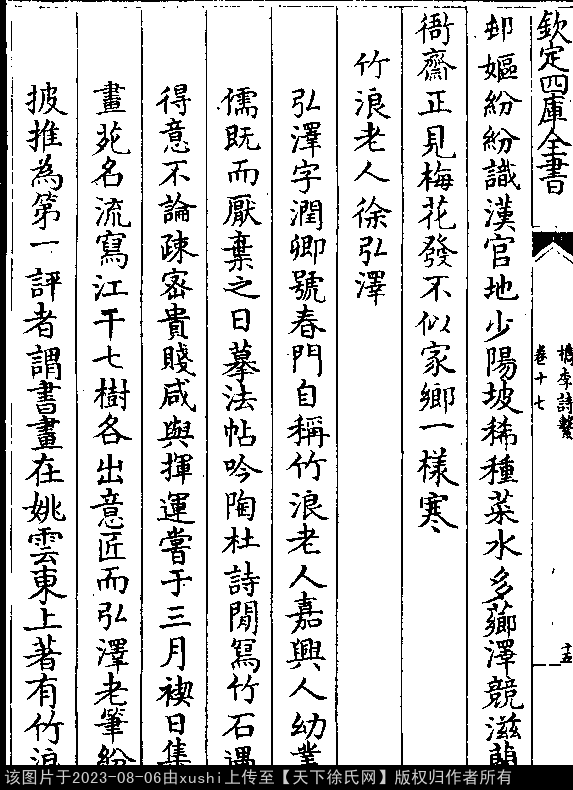 欽定四庫全書
檇李詩繫
卷十七
十五
邨嫗紛紛識漢官地少陽坡稀種菜水多薌澤競滋蘭
衙齋正見梅花發不似家鄉一樣寒
竹浪老人徐弘澤
弘澤字潤卿號春門自稱竹浪老人嘉興人幼業
儒既而厭棄之日摹法帖吟陶杜詩閒寫竹石遇
得意不論疎密貴賤咸與揮運嘗于三月禊日集
畫苑名流寫江干七樹各出意匠而弘澤老筆紛
披推為第一評者謂書畫在姚雲東上著有竹浪
该图片于2023-08-06由xushi上传至【天下徐氏网】版权归作者所有